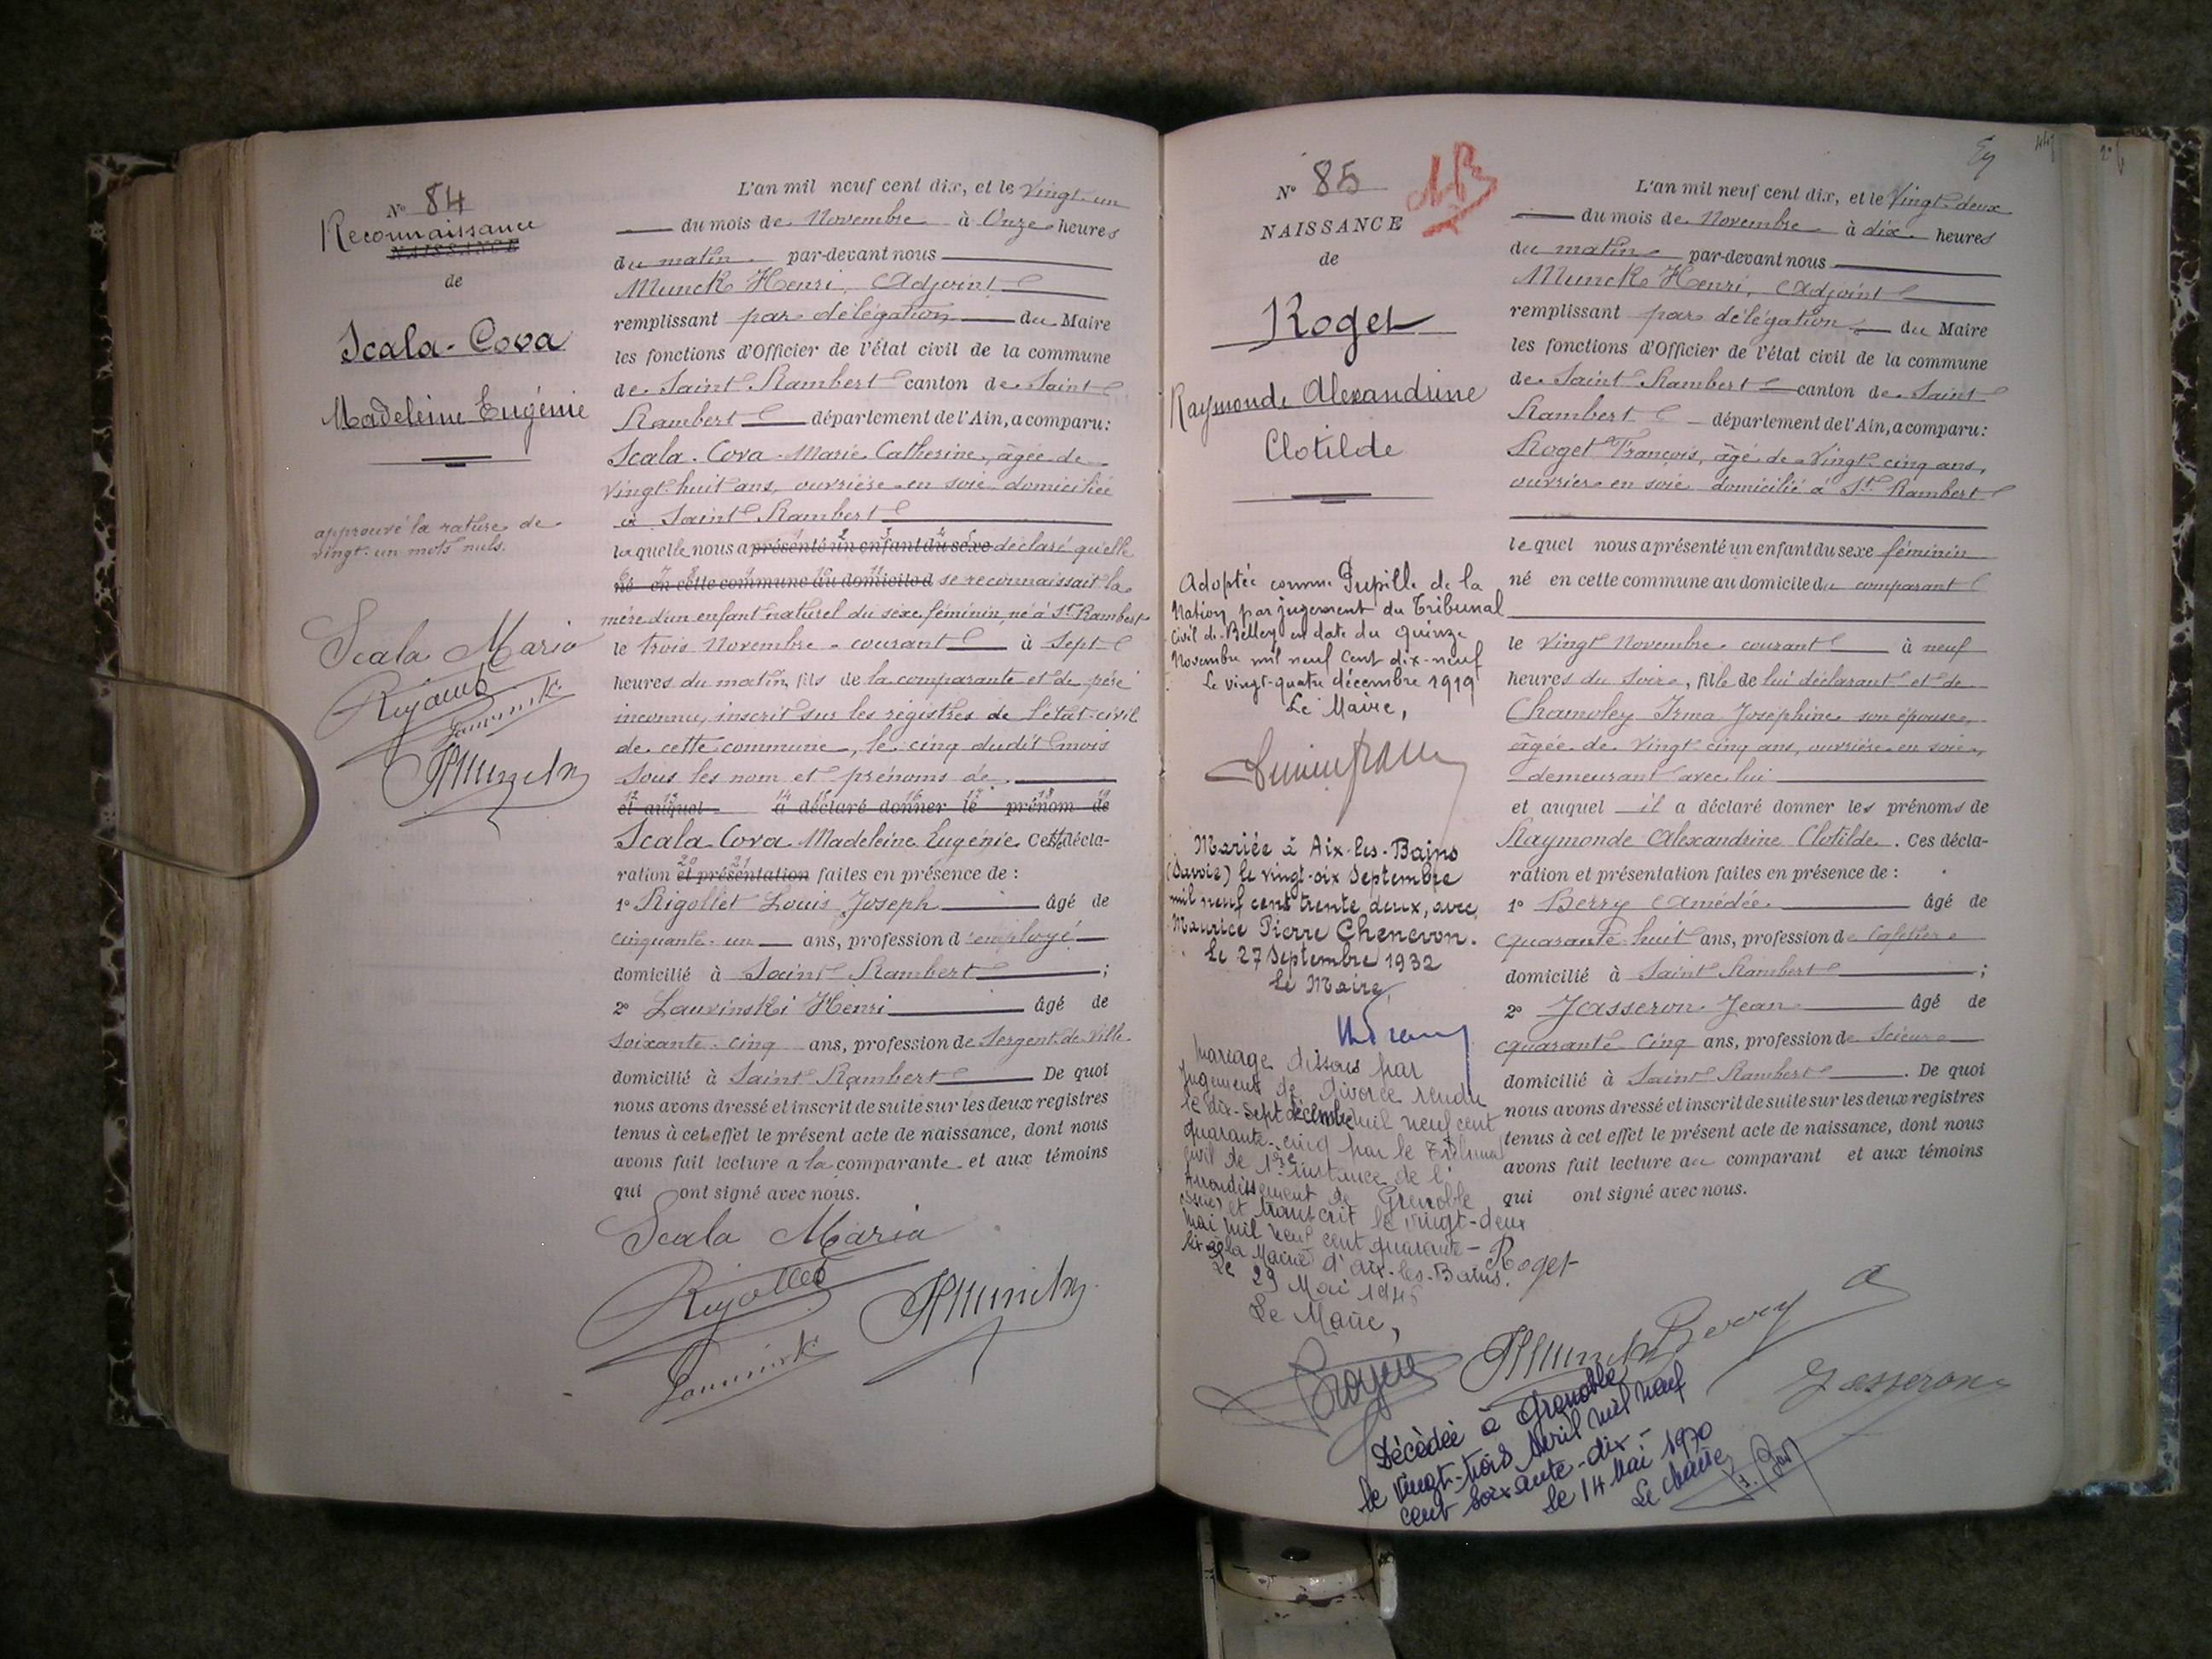 N° 84
Reconnaissance
NAISSANCE
de
Scala-Cova
Madeleine Eugénie
approuvé la rature de
vingt-un mots nuls.
Scala Maria
Rigollet
Hmunck
L'an mil neuf cent dix, et le Vingt-un
du mois de Novembre à Onze heures
du matin par-devant nous
Munck Henri, Adjoint
remplissant par délégation du Maire
les fonctions d'Officier de l'état civil de la commune
de Saint Rambert canton de Saint
Rambert département de l'Ain, a comparu:
Scala-Cova Marie Catherine, âgée de
vingt-huit ans, ouvrière en soie domiciliée
à Saint Rambert
laquelle nous a présenté un enfant du sexe déclaré qu'elle
né en cette commune au domicile d se reconnaissait la
mère d'un enfant naturel du sexe féminin, né à St Rambert
le trois Novembre courant à Sept
heures du matin, fils de la comparante et de père
inconnu, inscrit sur les registres de l'état-civil
de cette commune, le cinq dudit mois
sous les nom et prénoms de
et auquel a déclaré donner le prénom de
Scala Cova Madeleine Eugénie. Cette décla-
ration et présentation faites en présence de :
1° Rigollet Louis Joseph âgé de
cinquante-un ans, profession d'employé
domicilié à Saint Rambert ;
2° Lauvinski Henri âgé de
soixante-cinq ans, profession de Sergent de Ville
domicilié à Saint Rambert De quoi
nous avons dressé et inscrit de suite sur les deux registres
tenus à cet effet le présent acte de naissance, dont nous
avons fait lecture a la comparante et aux témoins
qui ont signé avec nous.
Scala Maria
Rigollet
Hmunck
N° 85
NAISSANCE
de
Roget
Raymonde Alexandrine
Clotilde
Adoptée comme Pupille de la
Nation par jugement du Tribunal
civil de Belley en date du quinze
Novembre mil neuf cent dix-neuf
Le vingt-quatre décembre 1919
Le Maire,
Mariée à Aix-les-Bains
(Savoie) le vingt-six Septembre
mil neuf cent trente deux, avec
Maurice Pierre Chenevon.
Le 27 Septembre 1932
Le Maire,
Mariage dissous par
jugement de divorce rendu
le dix-sept décembre mil neuf cent
quarante-cinq par le Tribunal
civil de 1ère instance de l'
Arrondissement de Grenoble
(Isère) et transcrit le vingt-deux
Mai mil neuf cent quarante-
six à la Mairie d'Aix-les-Bains.
Le 29 Mai 1946
Le Maire,
L'an mil neuf cent dix, et le Vingt-deux
du mois de Novembre à dix heures
du matin par-devant nous
Munck Henri, Adjoint
remplissant par délégation du Maire
les fonctions d'Officier de l'état civil de la commune
de Saint Rambert canton de Saint
Rambert département de l'Ain, a comparu:
Roget François, âgé de vingt-cinq ans,
ouvrier en soie domicilié à St Rambert
lequel nous a présenté un enfant du sexe féminin
né en cette commune au domicile du comparant
le vingt Novembre courant à neuf
heures du soir, fille de lui déclarant et de
Chamoley Irma Joséphine son épouse,
âgée de vingt-cinq ans, ouvrière en soie,
demeurant avec lui
et auquel il a déclaré donner les prénoms de
Raymonde Alexandrine Clotilde. Ces décla-
ration et présentation faites en présence de :
1° Berry Amédée âgé de
quarante huit ans, profession de Cafetier
domicilié à Saint Rambert ;
2° Jasseron Jean âgé de
quarante cinq ans, profession de Scieur
domicilié à Saint Rambert. De quoi
nous avons dressé et inscrit de suite sur les deux registres
tenus à cet effet le présent acte de naissance, dont nous
avons fait lecture au comparant et aux témoins
qui ont signé avec nous.
Roget
Hmunck Berry
Jasseron
Décédée à Grenoble
le vingt-trois Avril mil neuf
cent soixante-dix-
le 14 Mai 1970
Le Maire,